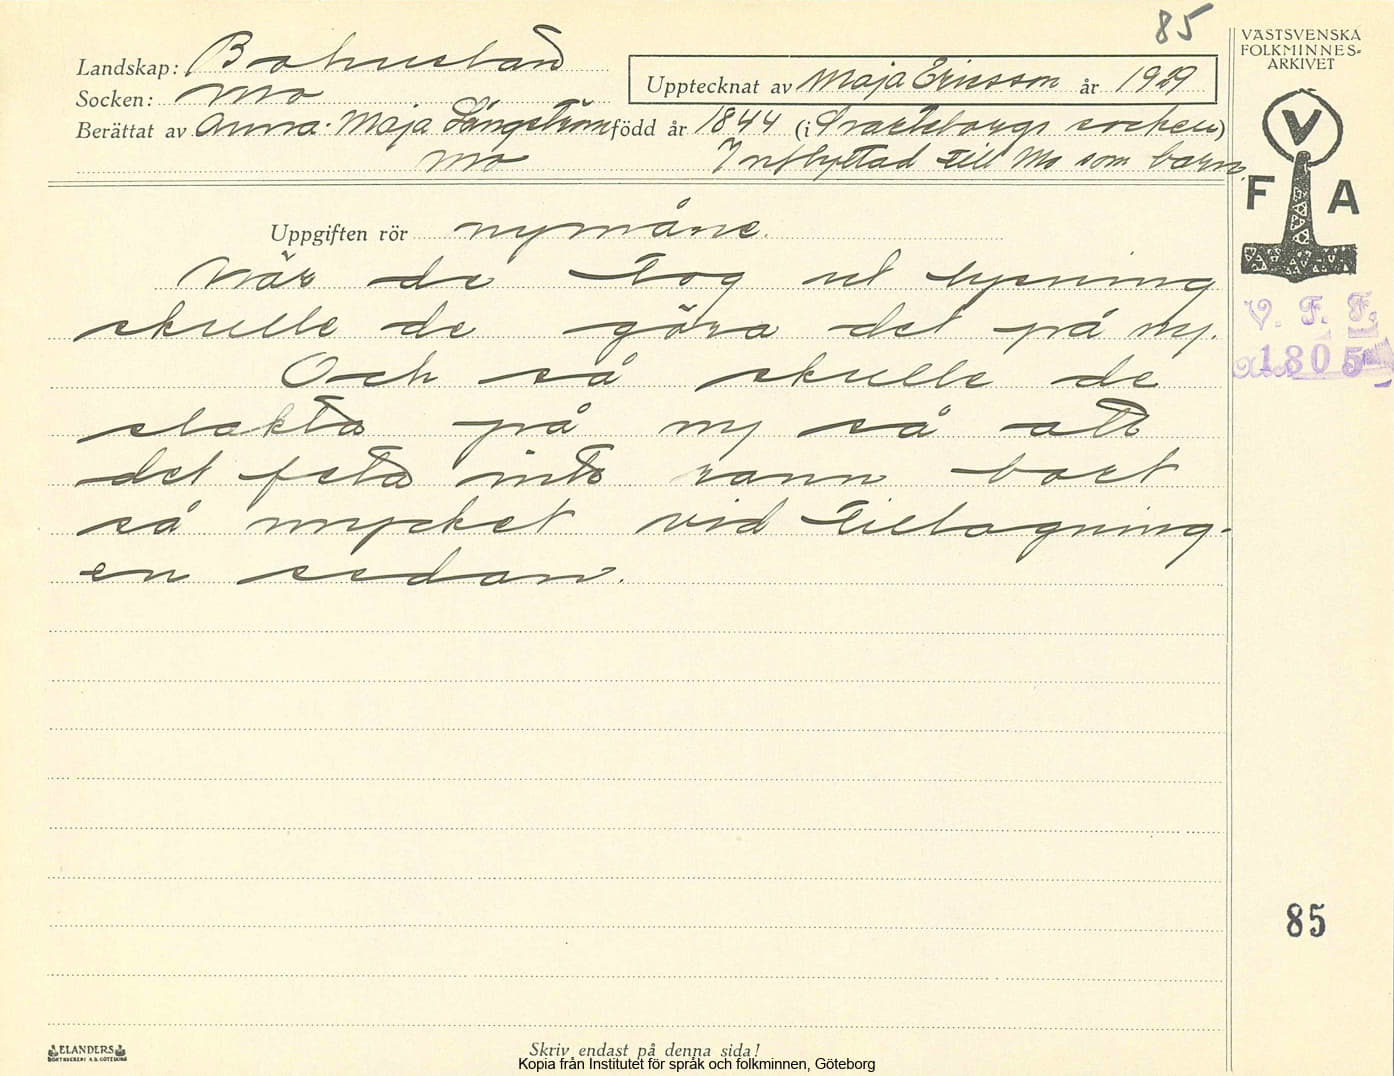 85
VÄSTSVENSKA
FOLKMINNES-
ARKIVET
Landskap: Bohuslän
Upptecknat av Maja Ericsson år 1929
Socken: Mo
Berättat av Anna-Maja Långström född år 1844 (i Svarteborgs socken)
Mo Inflyttad till Mo som barn.
V
F A
Uppgiften rör nymåne.
När de tog ut lysning
skulle de göra det på ny.
Och så skulle de
slakta på ny så att
det feta inte rann bort
så mycket vid tillagning-
en sedan.
V. F. F.
1805
85
ELANDERS
BOKTRYCKERI A.B. GÖTEBORG
Skriv endast på denna sida!
Kopia från Institutet för språk och folkminnen, Göteborg